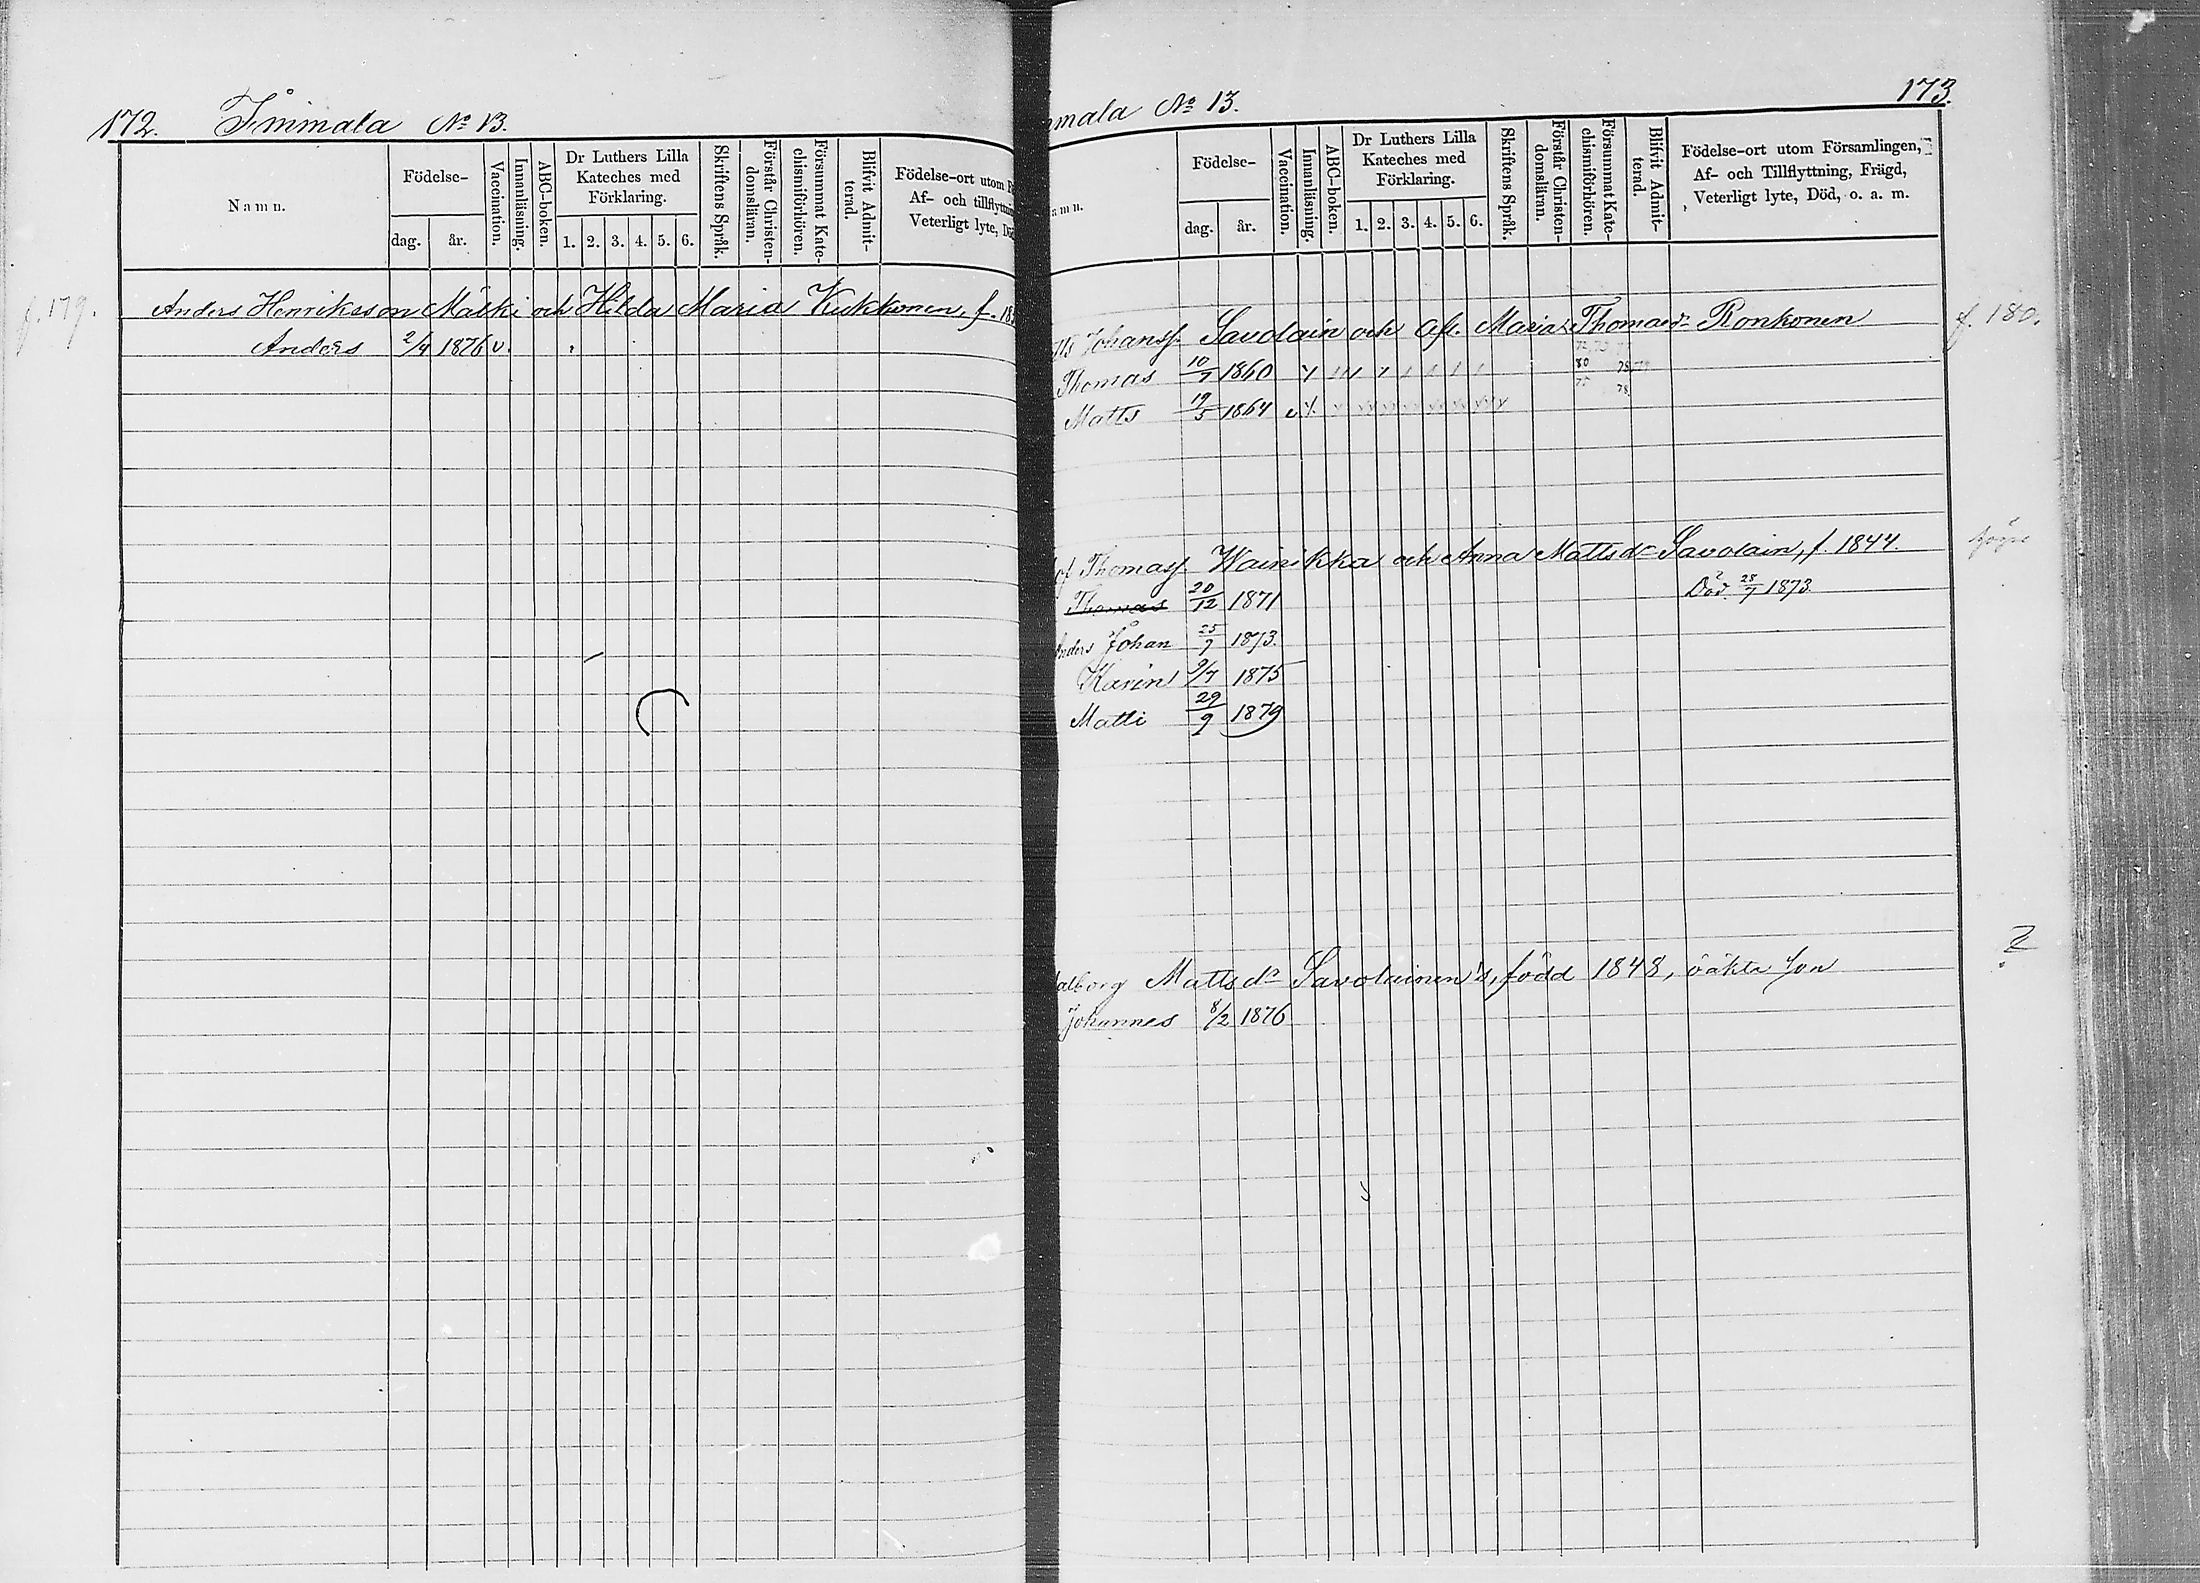 172. Immala No 13.
Namn. Födelse- dag. år. Vaccination. Innanläsning. ABC-boken. Dr Luthers Lilla Kateches med Förklaring. 1. 2. 3. 4. 5. 6. Skriftens Språk. Förstår Christen-domsläran. Försummat Kate-chismiförhören. Blifvit Admit-terad. Födelse-ort utom Af- och tillflyttnin Veterligt lyte, Dö
f. 179. Anders Henriksson Mälki och Hilda Maria Kukkonen, f. 18
Anders 2/4 1876 v.
mmala No 13. 173.
amn. Födelse- dag. år. Vaccination. Innanläsning. ABC-boken. Dr Luthers Lilla Kateches med Förklaring. 1. 2. 3. 4. 5. 6. Skriftens Språk. Förstår Christen-domsläran. Försummat Kate-chismiförhören. Blifvit Admit-terad. Födelse-ort utom Församlingen, Af- och Tillflyttning, Frägd, Veterligt lyte, Död, o. a. m.
tts Johanss. Savolain och Maria Thomaed:r Ronkonen f. 180.
Thomas 10/7 1860 80 78
Matts 19/5 1864 v 75 78
of Thomass. Wainikka och Anna Mattsd:r Savolain, f. 1844.
Thomas 20/12 1871 Död 28/7 1873.
Anders Johan 25/7 1873.
Karin 9/7 1875
Matti 29/9 1879
alborg Mattsd:r Savolainen's, född 1848, oäkta son ?
Johannes 8/2 1876